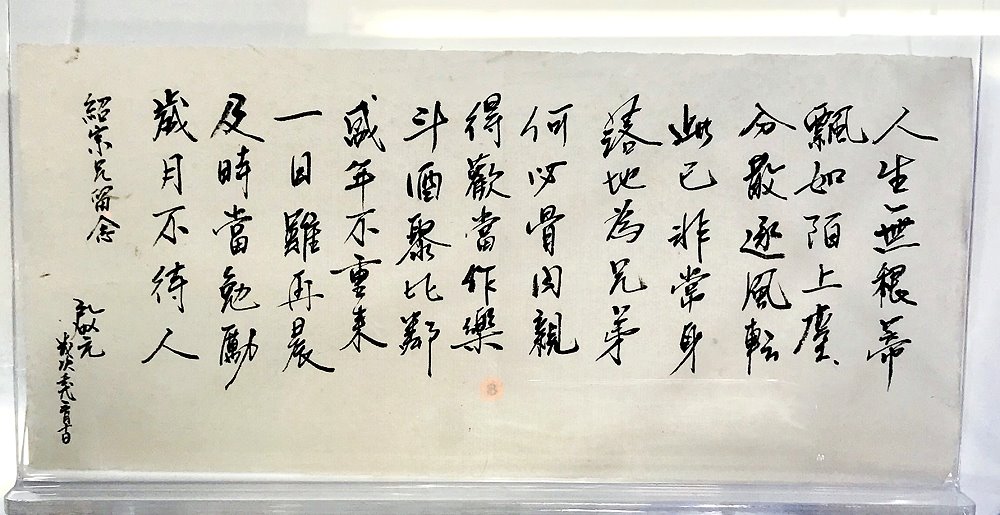 人生無根蒂
飄如陌上塵
分散逐風転
此已非常身
落地為兄弟
何必骨肉親
得歡當作樂
斗酒聚比鄰
盛年不重来
一日難再晨
及時當勉勵
歲月不待人
紹宗兄留念
元
歲次